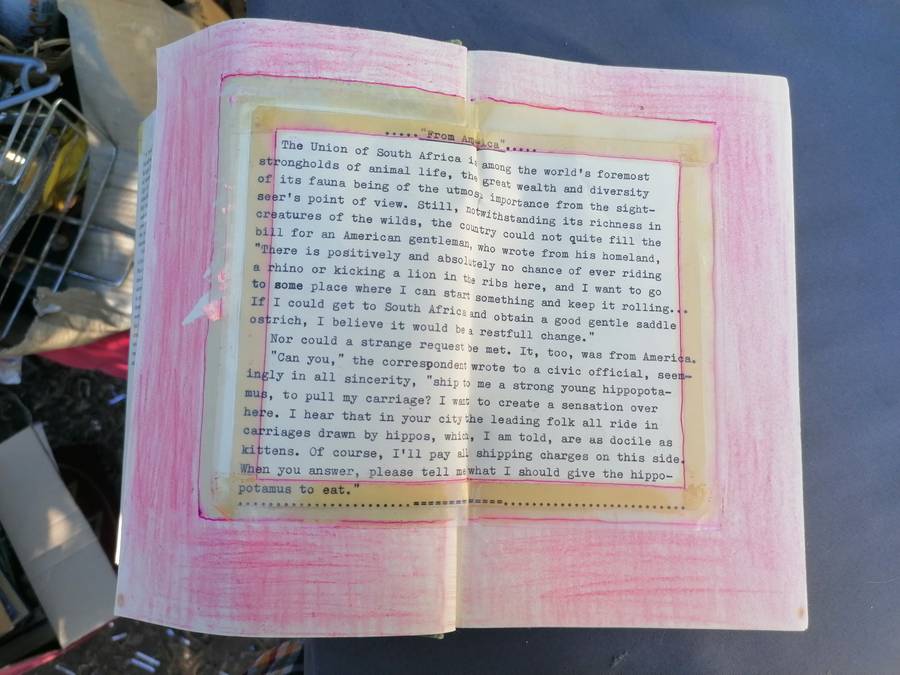 ....."From America".....
The Union of South Africa is among the world's foremost
strongholds of animal life, the great wealth and diversity
of its fauna being of the utmost importance from the sight-
seer's point of view. Still, notwithstanding its richness in
creatures of the wilds, the country could not quite fill the
bill for an American gentleman, who wrote from his homeland,
"There is positively and absolutely no chance of ever riding
a rhino or kicking a lion in the ribs here, and I want to go
to some place where I can start something and keep it rolling...
If I could get to South Africa and obtain a good gentle saddle
ostrich, I believe it would be a restfull change."
Nor could a strange request be met. It, too, was from America.
"Can you," the correspondent wrote to a civic official, seem-
ingly in all sincerity, "ship to me a strong young hippopota-
mus, to pull my carriage? I want to create a sensation over
here. I hear that in your city the leading folk all ride in
carriages drawn by hippos, which, I am told, are as docile as
kittens. Of course, I'll pay all shipping charges on this side.
When you answer, please tell me what I should give the hippo-
potamus to eat."